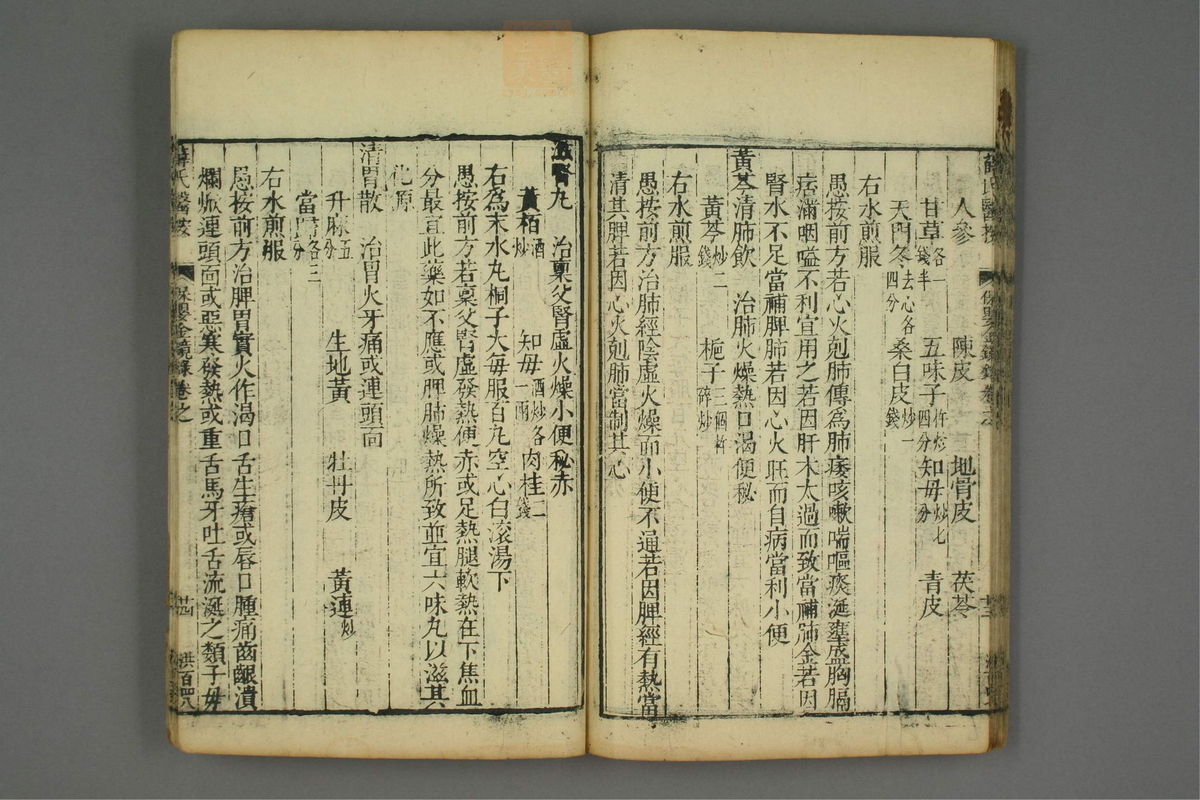 人參　陳皮　地骨皮　茯苓
甘草各一錢半　五味子杵炒四分　知母炒七分　青皮
天門冬去心各四分　桑白皮炒一錢
右水煎服
愚按前方若心火剋肺傳為肺痿咳嗽喘嘔痰涎壅盛胸膈
痞滿咽嗌不利宜用之若因肝木太過而致當補肺金若因
腎水不足當補脾肺若因心火旺而自病當利小便
黃芩清肺飲　治肺火燥熱口渴便秘
黃芩炒二錢　梔子三個杵碎炒
右水煎服
愚按前方治肺經陰虛火燥而小便不通若因脾經有熱當
清其脾若因心火剋肺當制其心
滋腎丸　治稟父腎虛火燥小便秘赤
黃栢酒炒　知母酒炒各一兩　肉桂二錢
右為末水丸桐子大每服百丸空心白滾湯下
愚按前方若稟父腎虛發熱便赤或足熱腿軟熱在下焦血
分最宜此藥如不應或脾肺燥熱所致並宜六味丸以滋其
化源
清胃散　治胃火牙痛或連頭面
升麻五分　生地黃　牡丹皮　黃連炒
當歸各三分
右水煎服
愚按前方治脾胃實火作渴口舌生瘡或唇口腫痛齒齦潰
爛焮連頭面或惡寒發熱或重舌馬牙吐舌流涎之類子母
薛氏醫案　保嬰金鏡錄卷之　廿四　洪百四八